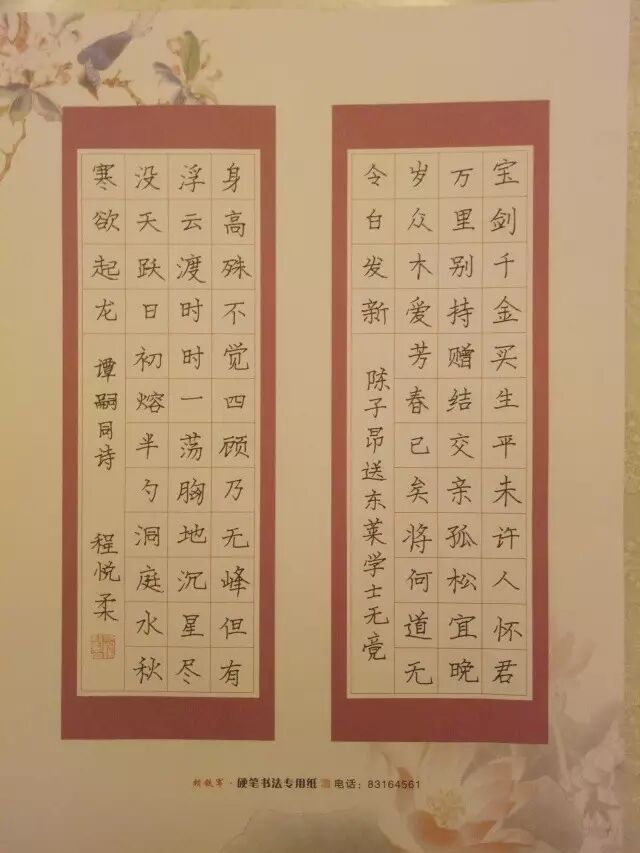 宝剑千金买生平未许人怀君
万里别持赠结交亲孤松宜晚
岁众木爱芳春已矣将何道无
令白发新 陈子昂送东莱学士无竟
身高殊不觉四顾乃无峰但有
浮云渡时时一荡胸地沉星尽
没天跃日初熔半勺洞庭水秋
寒欲起龙 谭嗣同诗 程悦柔
·硬笔书法专用纸 电话：83164561